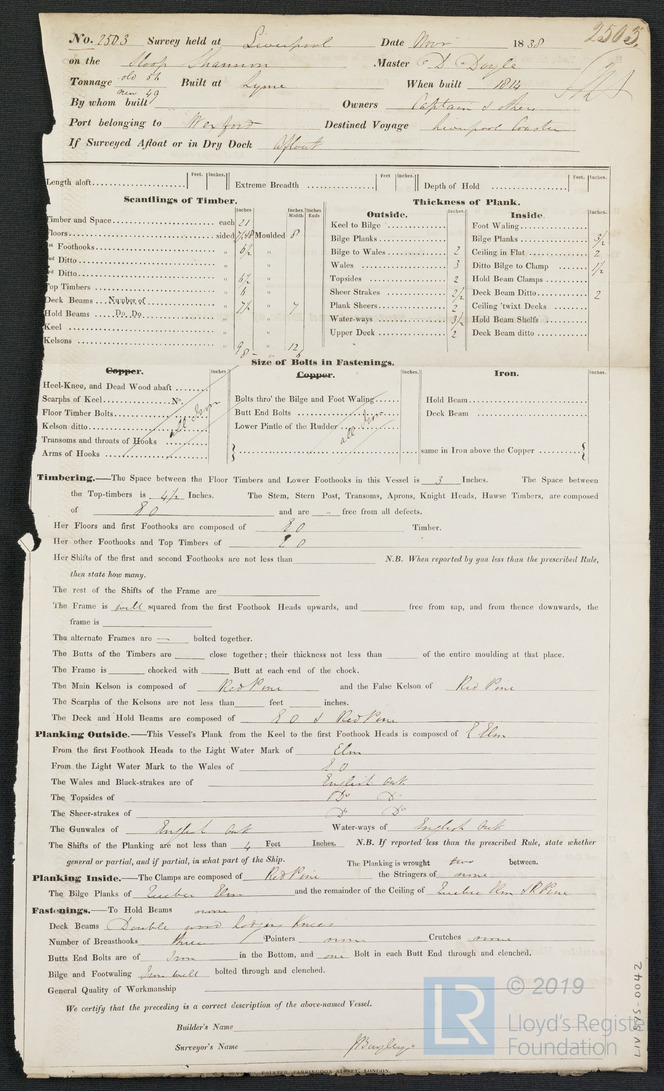 No. 2503 Survey held at Liverpool Date Novr 1838 2503
on the Sloop Shannon Master D Doyle
Tonnage old 54 new 49 Built at Lyme When built 1814
By whom built Owners Captain & others
Port belonging to Wexford Destined Voyage Liverpool Coaster
If Surveyed Afloat or in Dry Dock Afloat
Length aloft Feet. Inches. Extreme Breadth Feet Inches. Depth of Hold Feet. Inches.
Scantlings of Timber. Thickness of Plank.
Outside. Inside.
Timber and Space each 21
Floors sided Moulded 8
Foothooks 6½
Ditto
Ditto 6½
Top Timbers 6
Deck Beams Number of 7½ 7
Hold Beams Do. Do.
Keel
Kelsons
Keel to Bilge
Bilge Planks
Bilge to Wales 2
Wales 3
Topsides 2
Sheer Strakes 2½
Plank Sheers 2
Water-ways 3½
Upper Deck 2
Foot Waling
Bilge Planks 3½
Ceiling in Flat 2
Ditto Bilge to Clamp 1½
Hold Beam Clamps
Deck Beam Ditto 2
Ceiling 'twixt Decks
Hold Beam Shelfs
Deck Beam ditto
Size of Bolts in Fastenings.
Copper. Copper. Iron.
Heel-Knee, and Dead Wood abaft
Scarphs of Keel No.
Floor Timber Bolts
Kelson ditto
Transoms and throats of Hooks
Arms of Hooks
all Iron
Bolts thro' the Bilge and Foot Waling
Butt End Bolts
Lower Pintle of the Rudder
all Iron
Hold Beam
Deck Beam
same in Iron above the Copper
Timbering.—The Space between the Floor Timbers and Lower Foothooks in this Vessel is 3 Inches. The Space between
the Top-timbers is 4½ Inches. The Stem, Stern Post, Transoms, Aprons, Knight Heads, Hawse Timbers, are composed
of E O and are - free from all defects.
Her Floors and first Foothooks are composed of E O Timber.
Her other Foothooks and Top Timbers of E O
Her Shifts of the first and second Foothooks are not less than N.B. When reported by you less than the prescribed Rule,
then state how many.
The rest of the Shifts of the Frame are
The Frame is well squared from the first Foothook Heads upwards, and free from sap, and from thence downwards, the
frame is
The alternate Frames are — bolted together.
The Butts of the Timbers are close together; their thickness not less than of the entire moulding at that place.
The Frame is chocked with Butt at each end of the chock.
The Main Kelson is composed of Red Pine and the False Kelson of Red Pine
The Scarphs of the Kelsons are not less than feet inches.
The Deck and Hold Beams are composed of E O & Red Pine
Planking Outside.—This Vessel's Plank from the Keel to the first Foothook Heads is composed of E Elm
From the first Foothook Heads to the Light Water Mark of Elm
From the Light Water Mark to the Wales of E O
The Wales and Black-strakes are of English oak
The Topsides of Do Do
The Sheer-strakes of Do Do
The Gunwales of English oak Water-ways of English oak
The Shifts of the Planking are not less than 4 Feet Inches. N.B. If reported less than the prescribed Rule, state whether
general or partial, and if partial, in what part of the Ship. The Planking is wrought two between.
Planking Inside.—The Clamps are composed of Red Pine the Stringers of none
The Bilge Planks of Quebec Elm and the remainder of the Ceiling of Quebec Elm & R Pine
Fastenings.—To Hold Beams none
Deck Beams Double wood lodging knees
Number of Breasthooks three Pointers none Crutches none
Butts End Bolts are of Iron in the Bottom, and one Bolt in each Butt End through and clenched.
Bilge and Footwaling Iron well bolted through and clenched.
General Quality of Workmanship
We certify that the preceding is a correct description of the above-named Vessel.
Builder's Name
Surveyor's Name
LR © 2019
Lloyd's Register
Foundation
LIV 575-0042